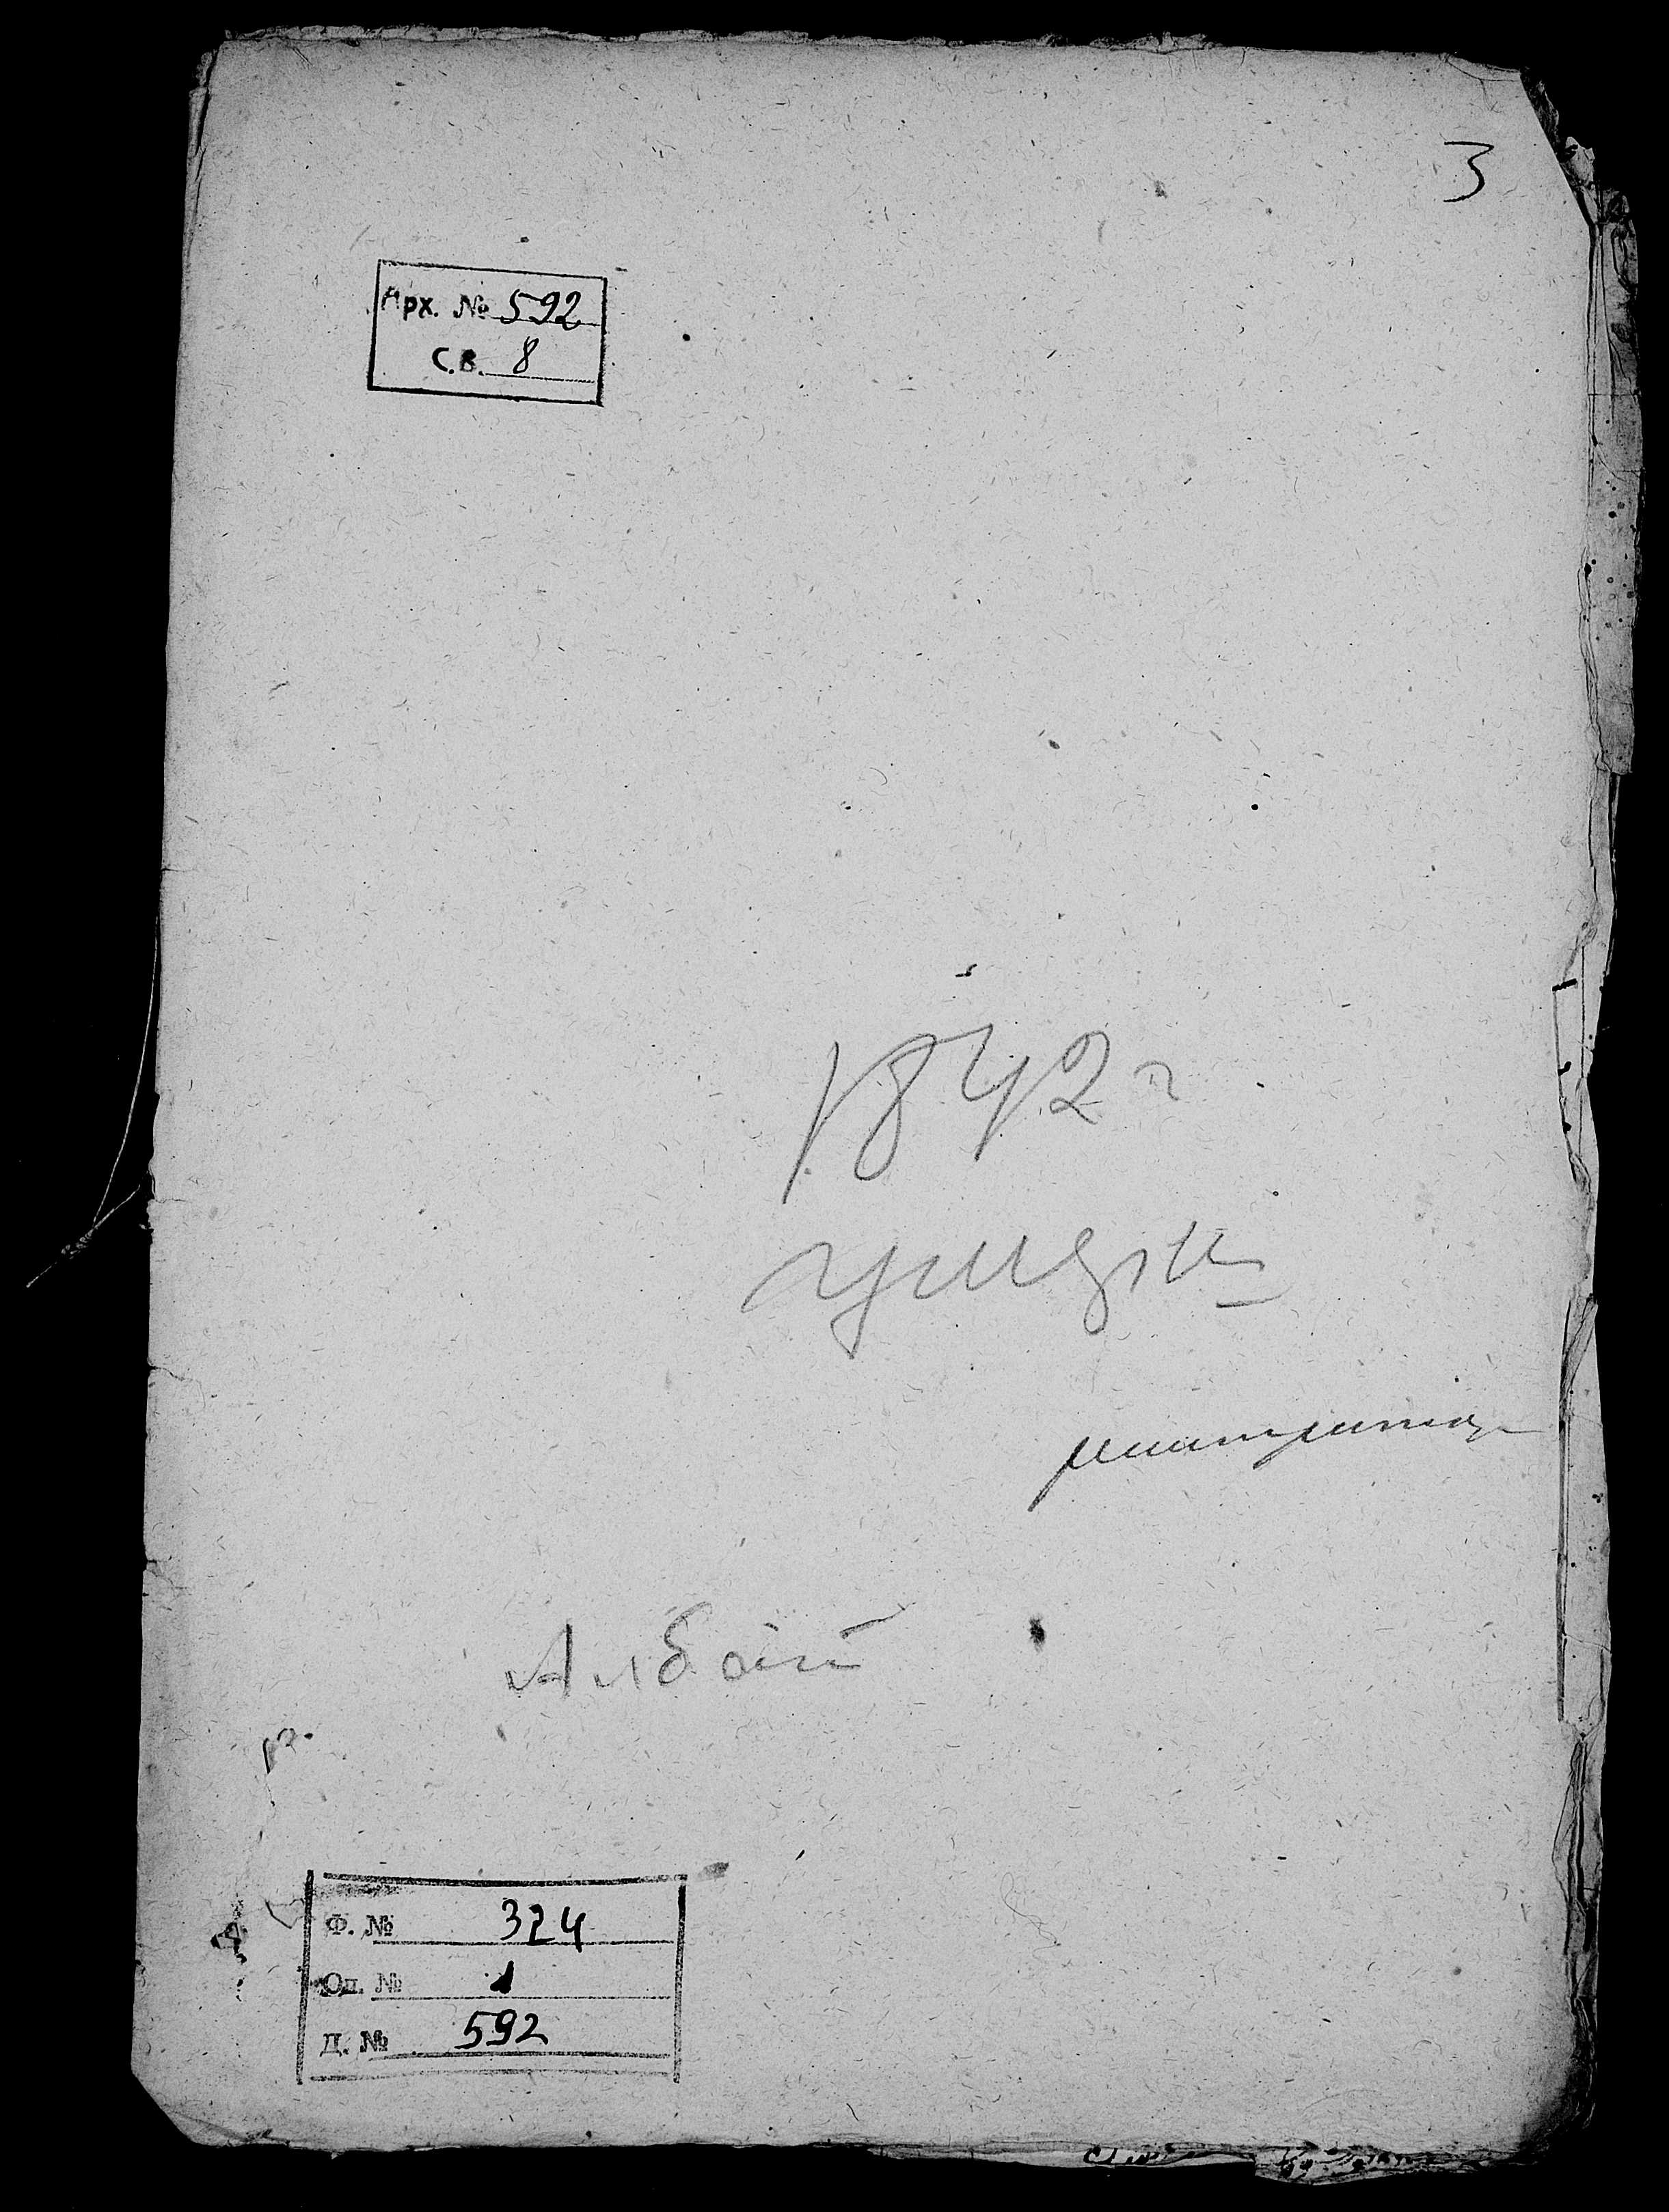 3
Арх. № 592
С.в. 8
1842 г
Албай
Ф. № 324
Оп. № 1
Д. № 592